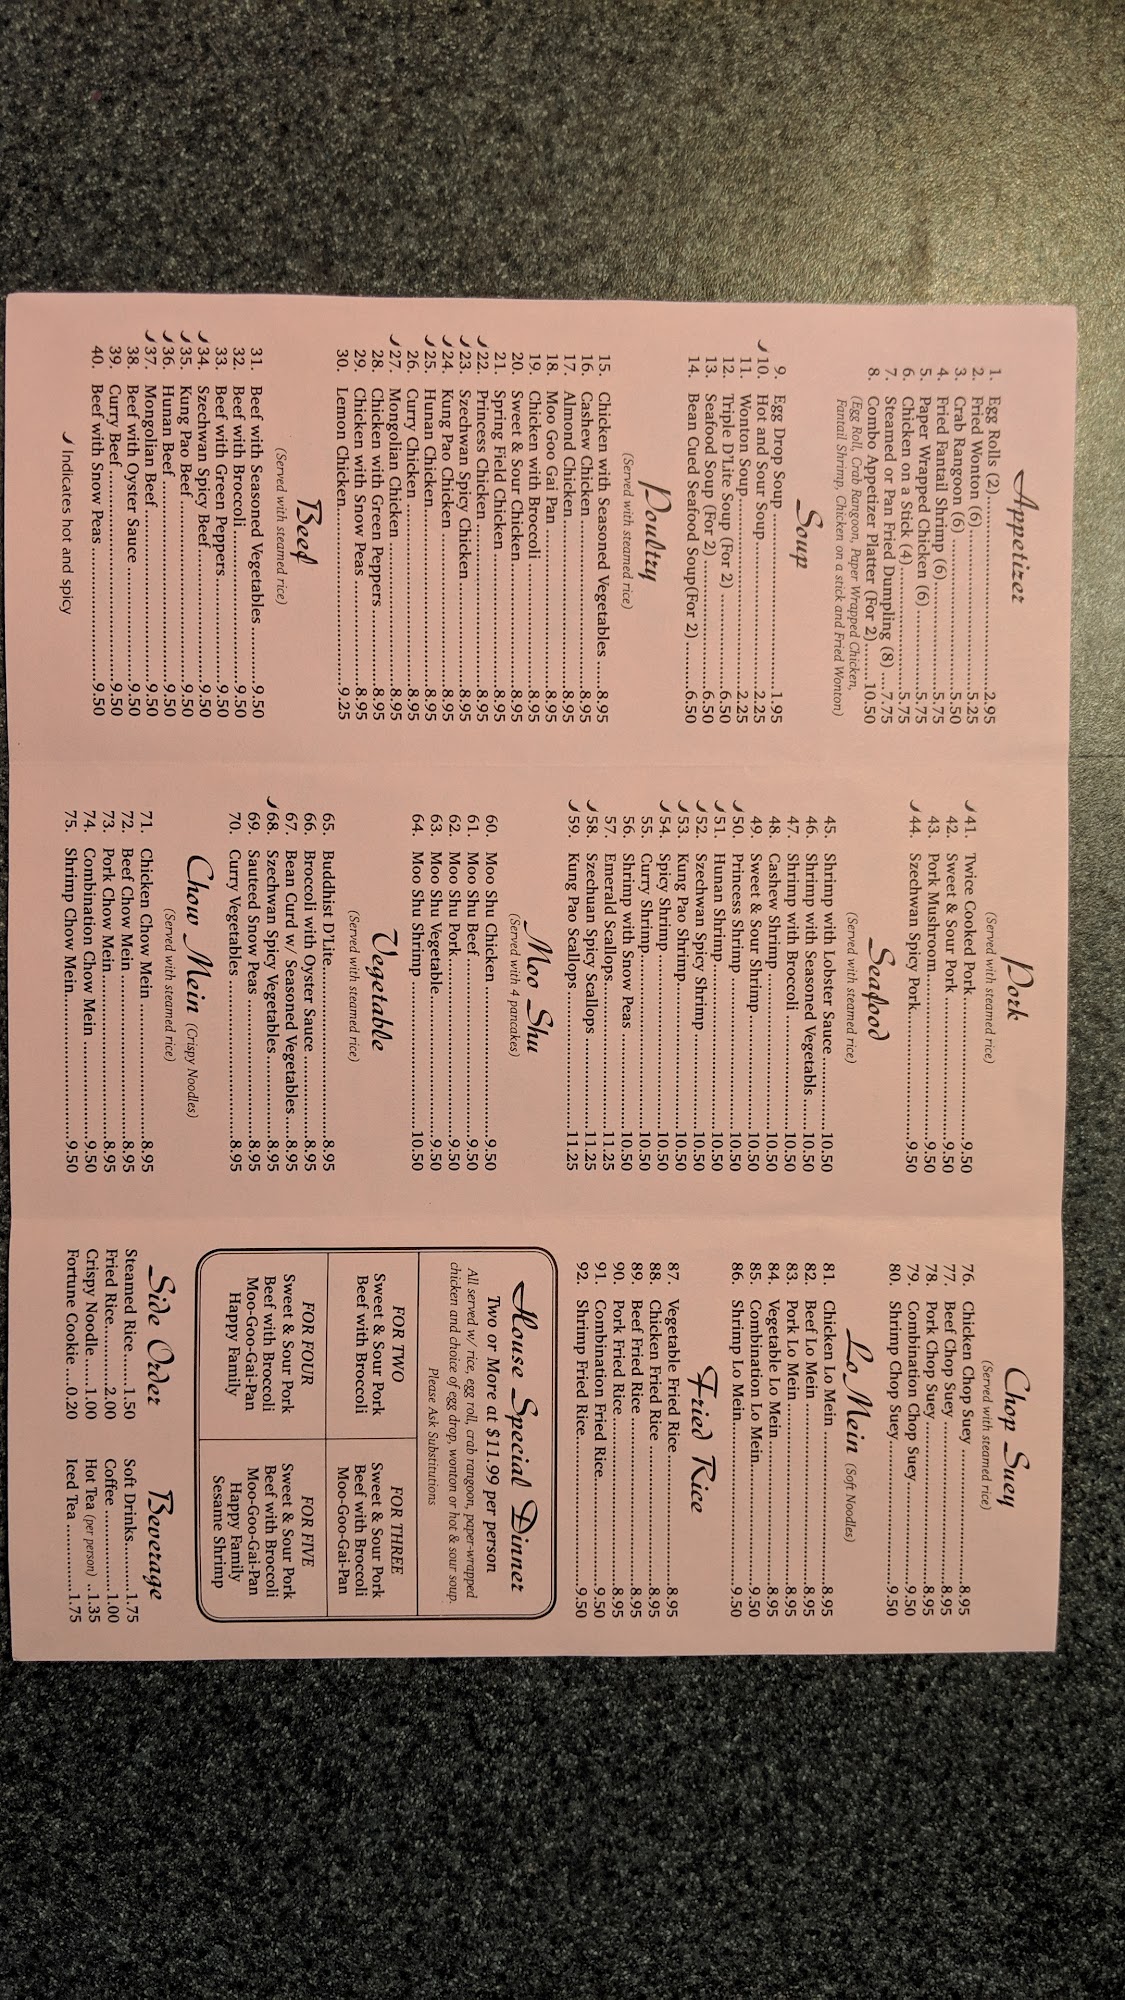 Appetizer
1. Egg Rolls (2)........2.95
2. Fried Wonton (6)........5.25
3. Crab Rangoon (6)........5.50
4. Fried Fantail Shrimp (6)........5.75
5. Paper Wrapped Chicken (6)........5.75
6. Chicken on a Stick (4)........5.75
7. Steamed or Pan Fried Dumpling (8)....7.75
8. Combo Appetizer Platter (For 2)....10.50
(Egg Roll, Crab Rangoon, Paper Wrapped Chicken,
Fantail Shrimp, Chicken on a stick and Fried Wonton)
Soup
9. Egg Drop Soup........1.95
10. Hot and Sour Soup........2.25
11. Wonton Soup........2.25
12. Triple D'Lite Soup (For 2)........6.50
13. Seafood Soup (For 2)........6.50
14. Bean Cued Seafood Soup(For 2)........6.50
Poultry
(Served with steamed rice)
15. Chicken with Seasoned Vegetables....8.95
16. Cashew Chicken........8.95
17. Almond Chicken........8.95
18. Moo Goo Gai Pan........8.95
19. Chicken with Broccoli........8.95
20. Sweet & Sour Chicken........8.95
21. Spring Field Chicken........8.95
22. Princess Chicken........8.95
23. Szechwan Spicy Chicken........8.95
24. Kung Pao Chicken........8.95
25. Hunan Chicken........8.95
26. Curry Chicken........8.95
27. Mongolian Chicken........8.95
28. Chicken with Green Peppers........8.95
29. Chicken with Snow Peas........8.95
30. Lemon Chicken........9.25
Beef
(Served with steamed rice)
31. Beef with Seasoned Vegetables........9.50
32. Beef with Broccoli........9.50
33. Beef with Green Peppers........9.50
34. Szechwan Spicy Beef........9.50
35. Kung Pao Beef........9.50
36. Hunan Beef........9.50
37. Mongolian Beef........9.50
38. Beef with Oyster Sauce........9.50
39. Curry Beef........9.50
40. Beef with Snow Peas........9.50
Indicates hot and spicy
Pork
(Served with steamed rice)
41. Twice Cooked Pork........9.50
42. Sweet & Sour Pork........9.50
43. Pork Mushroom........9.50
44. Szechwan Spicy Pork........9.50
Seafood
(Served with steamed rice)
45. Shrimp with Lobster Sauce........10.50
46. Shrimp with Seasoned Vegetabls....10.50
47. Shrimp with Broccoli........10.50
48. Cashew Shrimp........10.50
49. Sweet & Sour Shrimp........10.50
50. Princess Shrimp........10.50
51. Hunan Shrimp........10.50
52. Szechwan Spicy Shrimp........10.50
53. Kung Pao Shrimp........10.50
54. Spicy Shrimp........10.50
55. Curry Shrimp........10.50
56. Shrimp with Snow Peas........10.50
57. Emerald Scallops........11.25
58. Szechuan Spicy Scallops........11.25
59. Kung Pao Scallops........11.25
Moo Shu
(Served with 4 pancakes)
60. Moo Shu Chicken........9.50
61. Moo Shu Beef........9.50
62. Moo Shu Pork........9.50
63. Moo Shu Vegetable........9.50
64. Moo Shu Shrimp........10.50
Vegetable
(Served with steamed rice)
65. Buddhist D'Lite........8.95
66. Broccoli with Oyster Sauce........8.95
67. Bean Curd w/ Seasoned Vegetables....8.95
68. Szechwan Spicy Vegetables........8.95
69. Sauteed Snow Peas........8.95
70. Curry Vegetables........8.95
Chow Mein (Crispy Noodles)
(Served with steamed rice)
71. Chicken Chow Mein........8.95
72. Beef Chow Mein........8.95
73. Pork Chow Mein........8.95
74. Combination Chow Mein........9.50
75. Shrimp Chow Mein........9.50
Chop Suey
(Served with steamed rice)
76. Chicken Chop Suey........8.95
77. Beef Chop Suey........8.95
78. Pork Chop Suey........8.95
79. Combination Chop Suey........9.50
80. Shrimp Chop Suey........9.50
Lo Mein (Soft Noodles)
81. Chicken Lo Mein........8.95
82. Beef Lo Mein........8.95
83. Pork Lo Mein........8.95
84. Vegetable Lo Mein........8.95
85. Combination Lo Mein........9.50
86. Shrimp Lo Mein........9.50
Fried Rice
87. Vegetable Fried Rice........8.95
88. Chicken Fried Rice........8.95
89. Beef Fried Rice........8.95
90. Pork Fried Rice........8.95
91. Combination Fried Rice........9.50
92. Shrimp Fried Rice........9.50
House Special Dinner
Two or More at $11.99 per person
All served w/ rice, egg roll, crab rangoon, paper-wrapped
chicken and choice of egg drop, wonton or hot & sour soup.
Please Ask Substitutions
FOR TWO
Sweet & Sour Pork
Beef with Broccoli
FOR THREE
Sweet & Sour Pork
Beef with Broccoli
Moo-Goo-Gai-Pan
FOR FOUR
Sweet & Sour Pork
Beef with Broccoli
Moo-Goo-Gai-Pan
Happy Family
FOR FIVE
Sweet & Sour Pork
Beef with Broccoli
Moo-Goo-Gai-Pan
Happy Family
Sesame Shrimp
Side Order
Steamed Rice........1.50
Fried Rice........2.00
Crispy Noodle.......1.00
Fortune Cookie....0.20
Beverage
Soft Drinks........1.75
Coffee........1.00
Hot Tea (per person)..1.35
Iced Tea........1.75